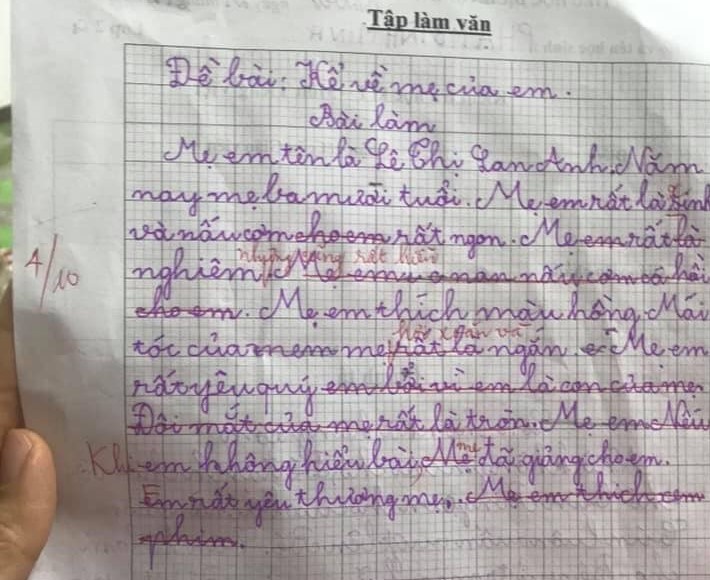 Tập làm văn
Đề bài: Kể về mẹ của em.
Bài làm
Mẹ em tên là Lê Thị Lan Anh. Năm
nay mẹ ba mười tuổi. Mẹ em rất là xinh
và nấu cơm cho em rất ngon. Mẹ em rất là
nhưng cũng rất hiền
4/10
nghiêm. Mẹ em nấu cơm cá hồi
cho em. Mẹ em thích màu hồng. Mái
hơi xoăn và
tóc của mẹ rất là ngắn. Mẹ em
rất yêu quý em bởi vì em là con của mẹ.
Đôi mắt của mẹ rất là tròn. Mẹ em Nếu
Khi em không hiểu bài, Mẹ mẹ đã giảng cho em.
Em rất yêu thương mẹ. Mẹ em thích xem
phim.